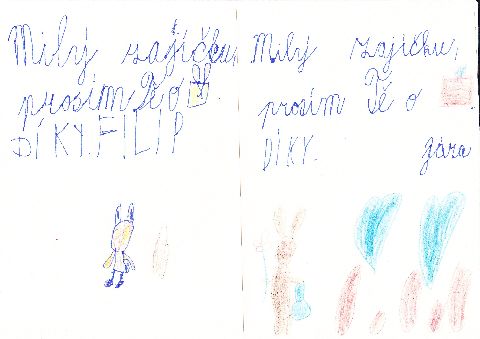 Milý zajíčku,
prosím Tě o
DÍKY. FILIP
Milý zajíčku,
prosím Tě o
DÍKY. Jára